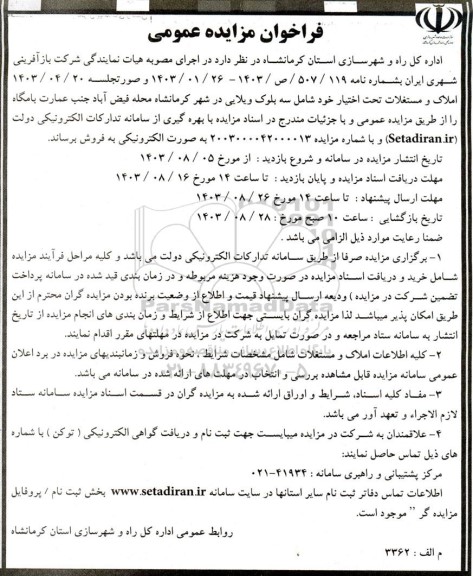 فراخوان مزایده عمومی
اداره کل راه و شهرسازی استان کرمانشاه در نظر دارد در اجرای مصوبه هیات نمایندگی شرکت بازآفرینی
شهری ایران بشماره نامه ۱۱۹ / ۵۰۷ / ص / ۱۴۰۳ – ۲۶ / ۰۱ / ۱۴۰۳ و صورتجلسه ۲۰ / ۰۴ / ۱۴۰۳
املاک و مستغلات تحت اختیار خود شامل سه بلوک ویلایی در شهر کرمانشاه محله فیض آباد جنب عمارت بامگاه
را از طریق مزایده عمومی و با جزئیات مندرج در اسناد مزایده با بهره گیری از سامانه تدارکات الکترونیکی دولت
(Setadiran.ir) و با شماره مزایده ۲۰۰۳۰۰۰۰۴۲۰۰۰۰۱۳ به صورت الکترونیکی به فروش برساند.
تاریخ انتشار مزایده در سامانه و شروع بازدید : از مورخ ۰۵ / ۰۸ / ۱۴۰۳
مهلت دریافت اسناد مزایده و پایان بازدید : تا ساعت ۱۴ مورخ ۱۶ / ۰۸ / ۱۴۰۳
مهلت ارسال پیشنهاد : تا ساعت ۱۴ مورخ ۲۶ / ۰۸ / ۱۴۰۳
تاریخ بازگشایی : ساعت ۱۰ صبح مورخ : ۲۸ / ۰۸ / ۱۴۰۳
ضمنا رعایت موارد ذیل الزامی می باشد .
۱- برگزاری مزایده صرفا از طریق سامانه تدارکات الکترونیکی دولت می باشد و کلیه مراحل فرآیند مزایده
شامل خرید و دریافت اسناد مزایده در صورت وجود هزینه مربوطه و در زمان بندی قید شده در سامانه پرداخت
تضمین شرکت در مزایده ) ودیعه ارسال پیشنهاد قیمت و اطلاع از وضعیت برنده بودن مزایده گران محترم از این
طریق امکان پذیر میباشد لذا مزایده گران بایستی جهت اطلاع از شرایط و زمان بندی های انجام مزایده از تاریخ
انتشار به سامانه ستاد مراجعه و در صورت تمایل به شرکت در مزایده در مهلتهای مقرر اقدام نمایند.
۲- کلیه اطلاعات املاک و مستغلات شامل مشخصات شرایط و نحوه فروش و زمانبندیهای مزایده در برد اعلان
عمومی سامانه مزایده قابل مشاهده بررسی و انتخاب در مهلت های ارائه شده در سامانه می باشد.
۳- مفاد کلیه اسناد، شرایط و اوراق ارائه شده به مزایده گران در قسمت اسناد مزایده سامانه ستاد
لازم الاجراء و تعهد آور می باشد.
۴- علاقمندان به شرکت در مزایده میبایست جهت ثبت نام و دریافت گواهی الکترونیکی ( توکن ) با شماره
های ذیل تماس حاصل نمایند:
مرکز پشتیبانی و راهبری سامانه : ۴۱۹۳۴-۰۲۱
اطلاعات تماس دفاتر ثبت نام سایر استانها در سایت سامانه www.setadiran.ir بخش ثبت نام / پروفایل
مزایده گر ” موجود است.
روابط عمومی اداره کل راه و شهرسازی استان کرمانشاه
م الف : ۳۳۶۲